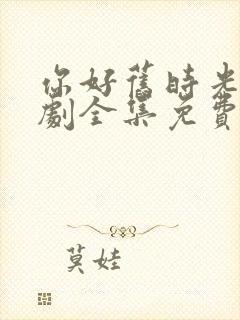 你好舊時光
劇全集免費
莫娃